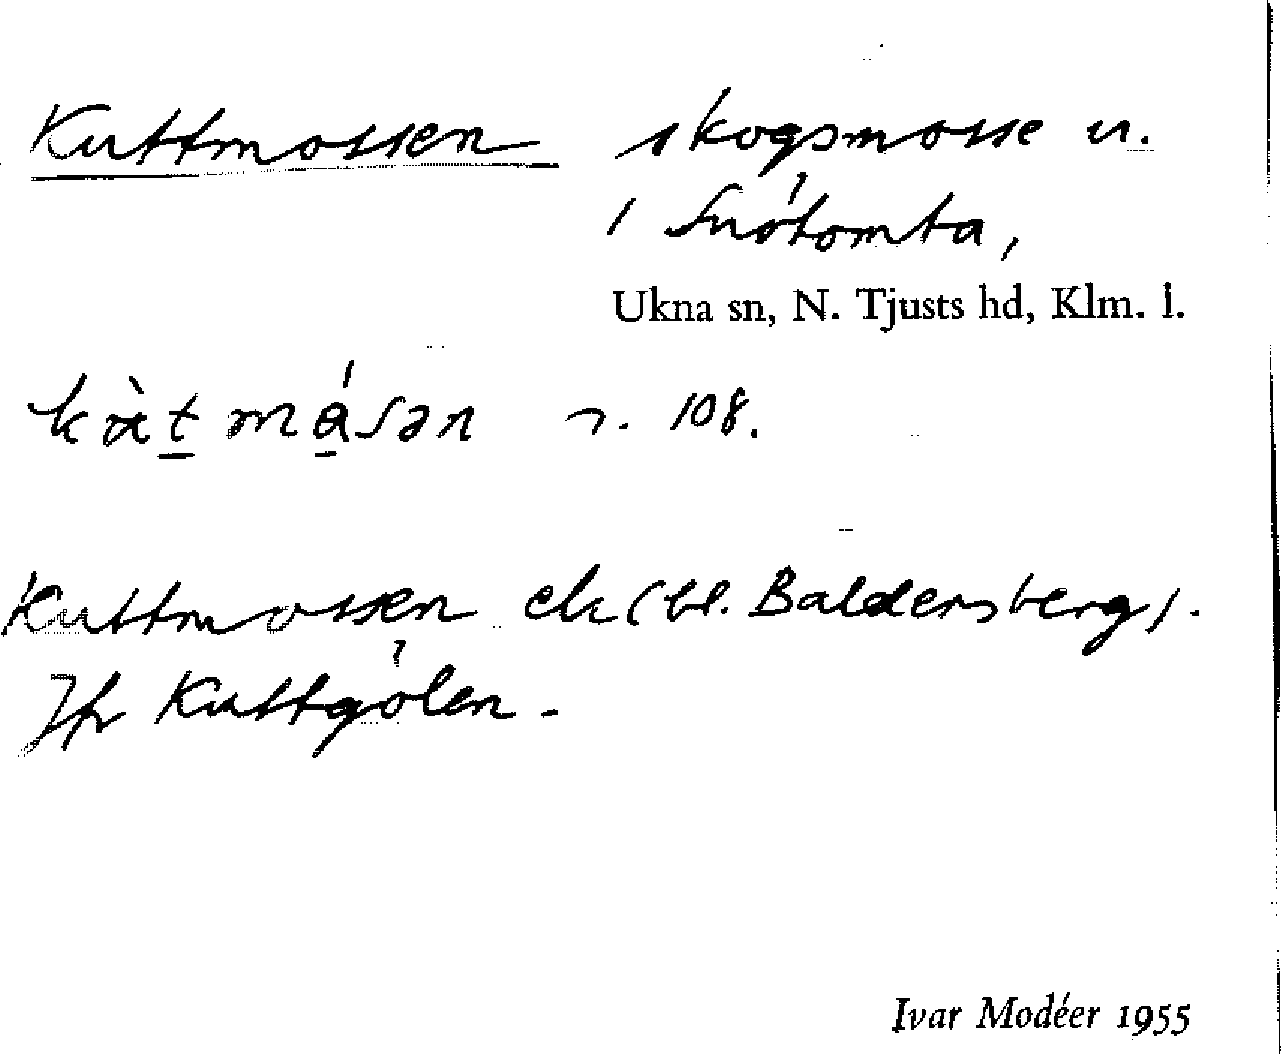 Kuttmossen skogsmosse u.
i Snötomta,
Ukna sn, N. Tjusts hd, Klm. l.
n. 108.
Kuttmossen ek (bl. Baldersberg).
Jfr Kuttgölen.
Ivar Modéer 1955